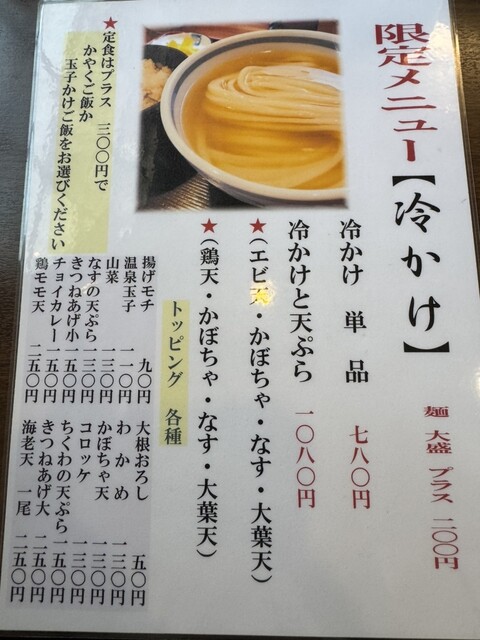 限定メニュー【冷かけ】
麺 大盛 プラス 二〇〇円
冷かけ 単品 七八〇円
冷かけと天ぷら 一〇八〇円
★(エビ天・かぼちゃ・なす・大葉天)
★(鶏天・かぼちゃ・なす・大葉天)
トッピング 各種
揚げモチ 九〇円
温泉玉子 一一〇円
山菜 一三〇円
なすの天ぷら 一三〇円
きつねあげ小 一五〇円
チョイカレー 一五〇円
鶏モモ天 二五〇円
大根おろし 五〇円
わかめ 一三〇円
かぼちゃ天 一三〇円
コロッケ 一三〇円
ちくわの天ぷら 一五〇円
きつねあげ大 二五〇円
海老天 一尾 二五〇円
★定食はプラス 三〇〇円で
かやくご飯か
玉子かけご飯をお選びください